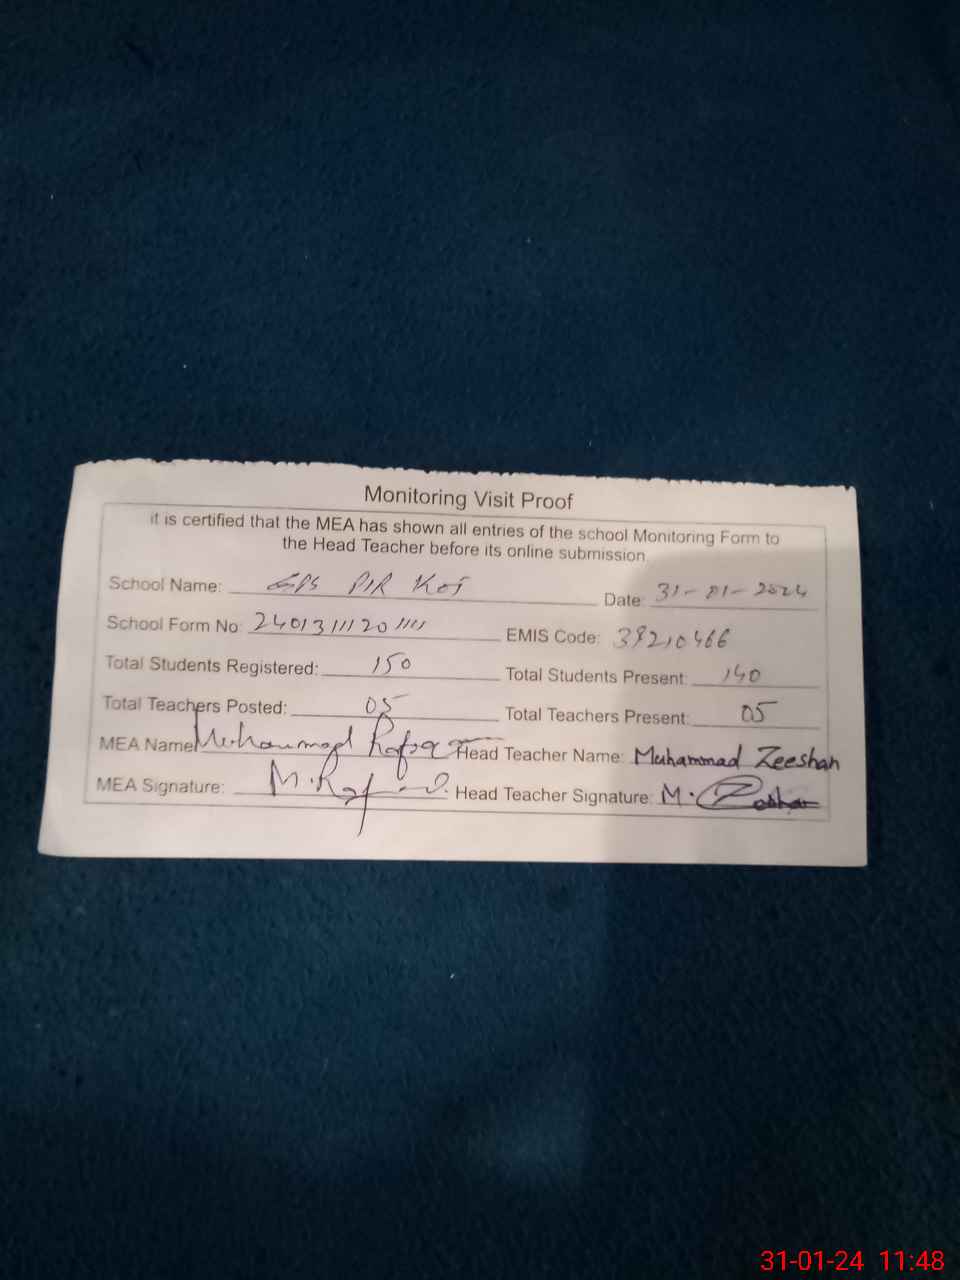 Monitoring Visit Proof
it is certified that the MEA has shown all entries of the school Monitoring Form to
the Head Teacher before its online submission
School Name: GPS PIR KOT Date: 31-01-2024
School Form No: EMIS Code: 38210466
Total Students Registered: 150 Total Students Present: 140
Total Teachers Posted: 05 Total Teachers Present: 05
MEA Name Muhammad Head Teacher Name: Muhammad Zeeshan
MEA Signature: Head Teacher Signature: M.
31-01-24 11:48